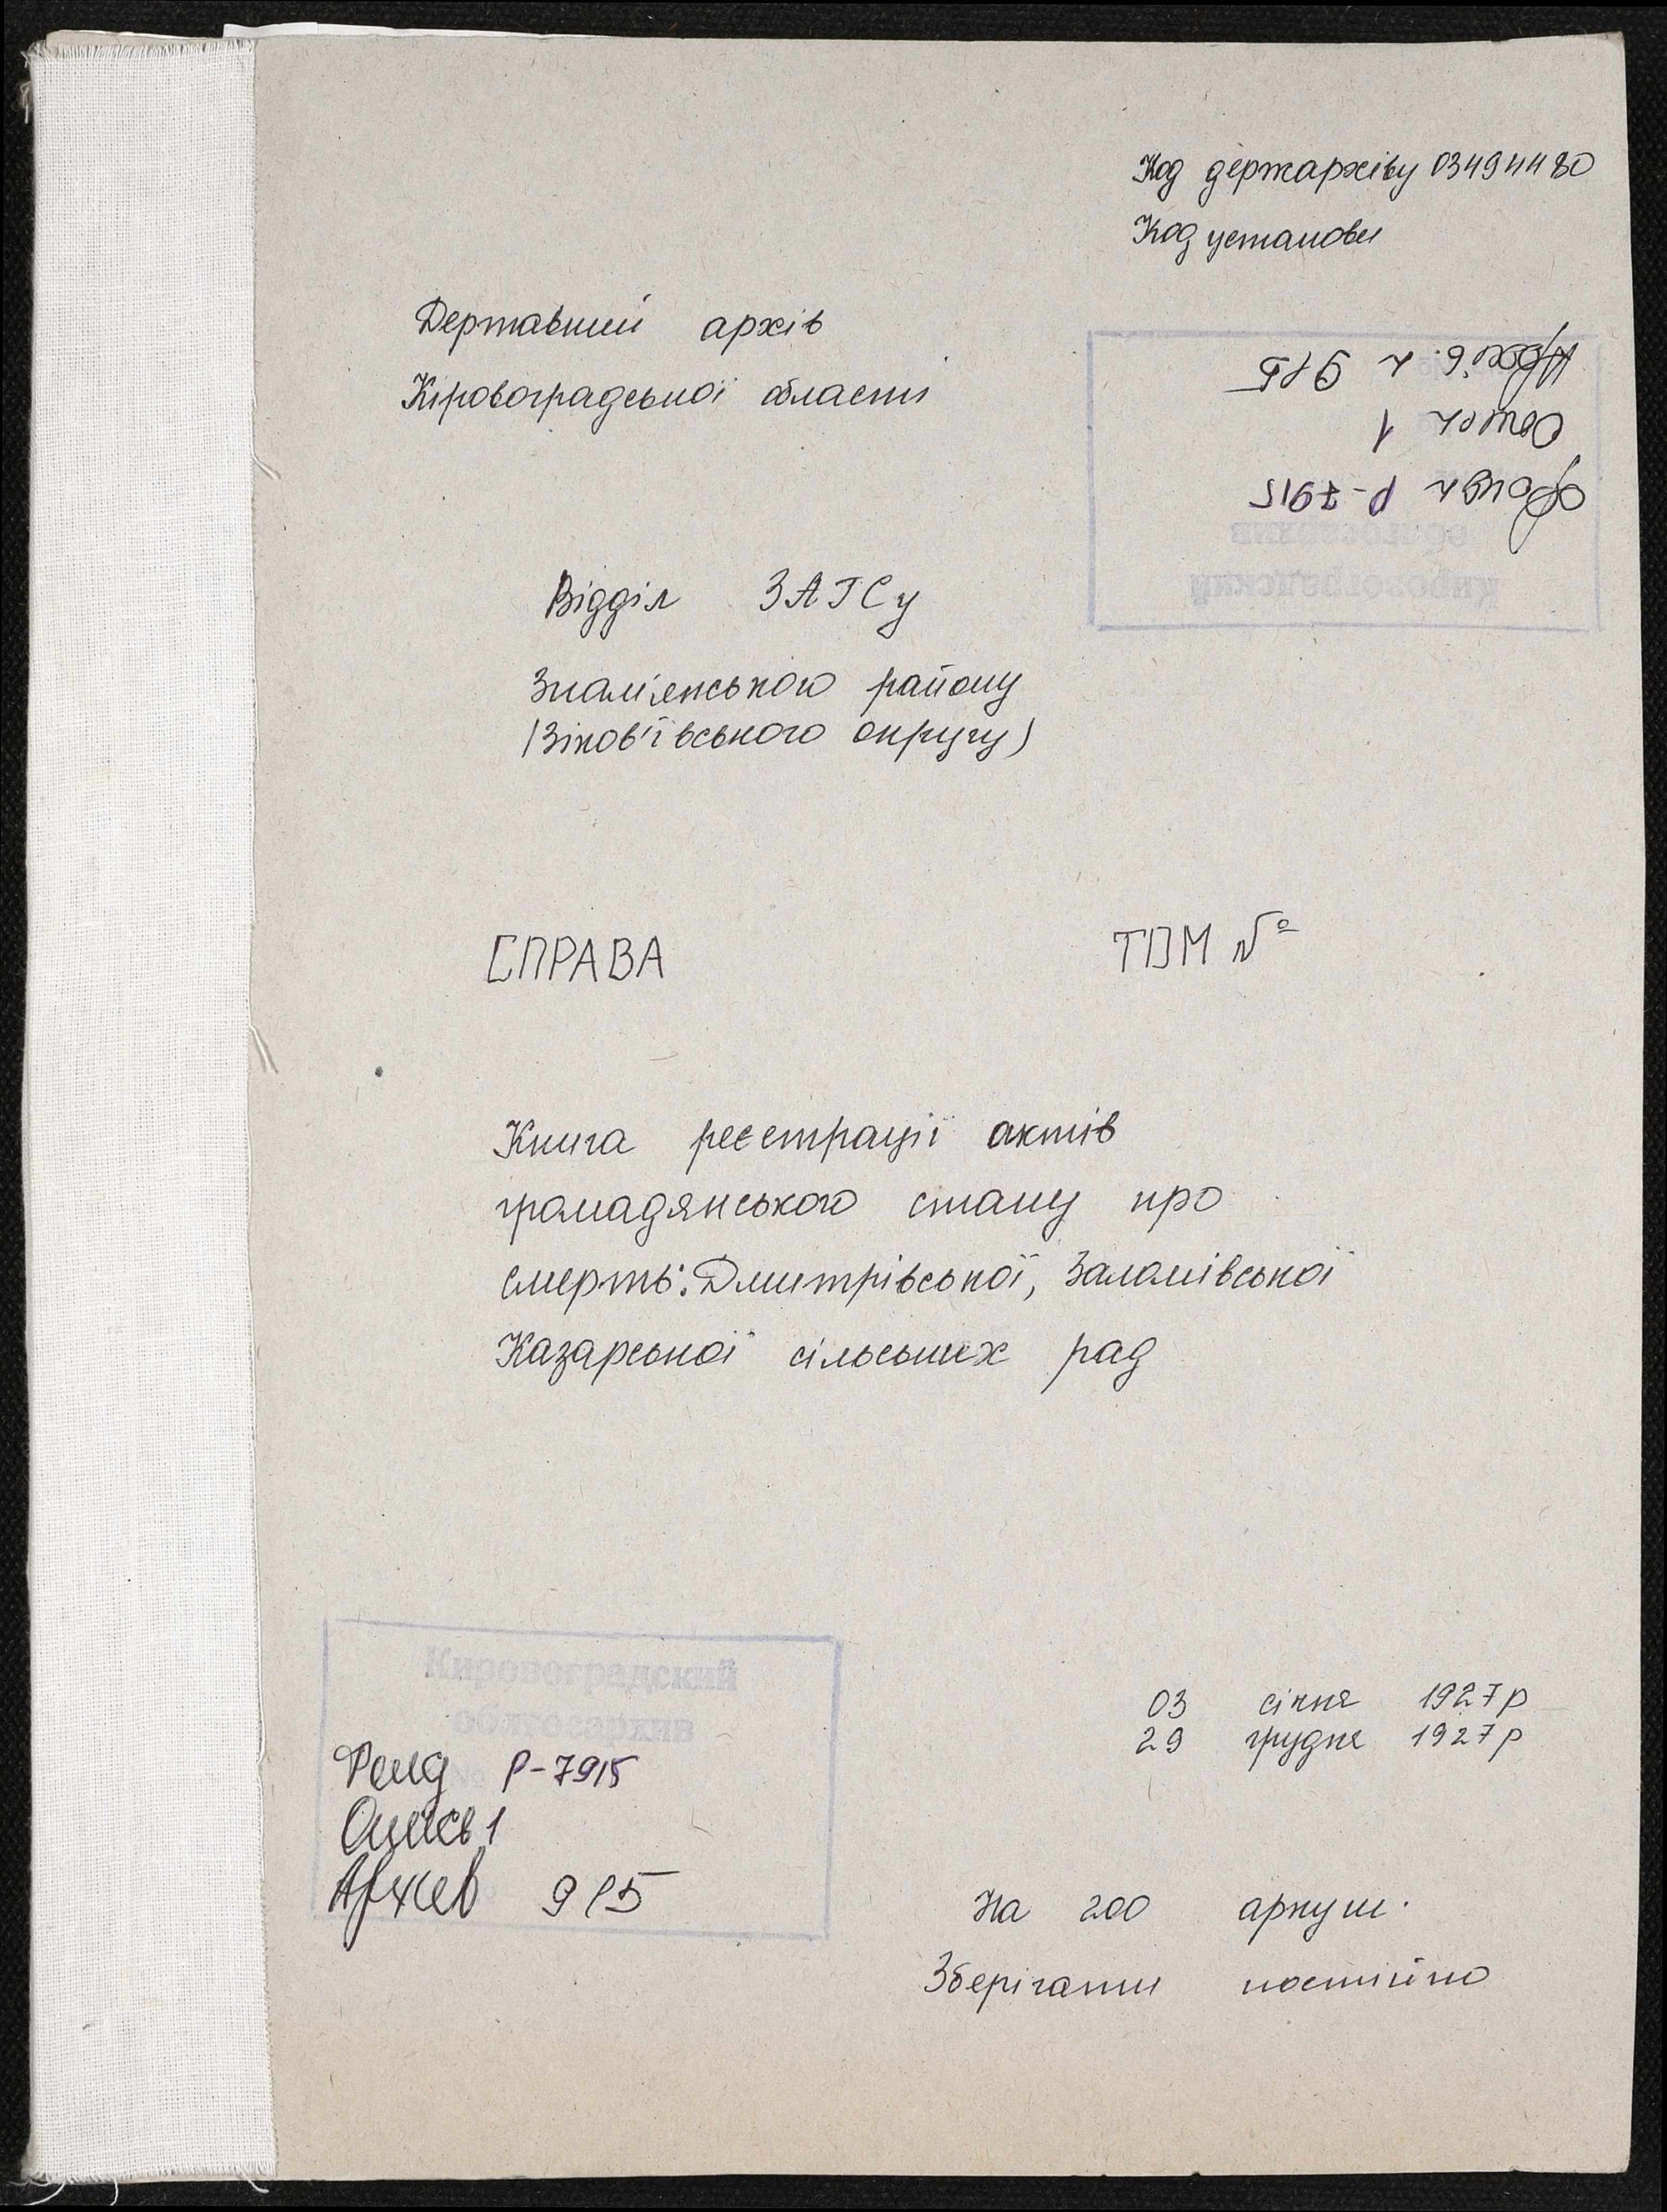 Код держархіву 03494480
Код установи
Державний архів
Кіровоградської області
Архів. 915
Опись 1
Фонд Р-7915
облгосархив
Кировоградский
Відділ ЗАГСу
Знам'янського району
(Зінов'ївського округу)
СПРАВА ТОМ №
Книга реєстрації актів
громадянського стану про
смерть: Дмитрівської, Заломівської
Казарської сільських рад
Кировоградский
облгосархив
03 січня 1927р
29 грудня 1927р
Фонд № Р-7915
Опись 1
Архив 915
На 200 аркуш.
Зберігати постійно